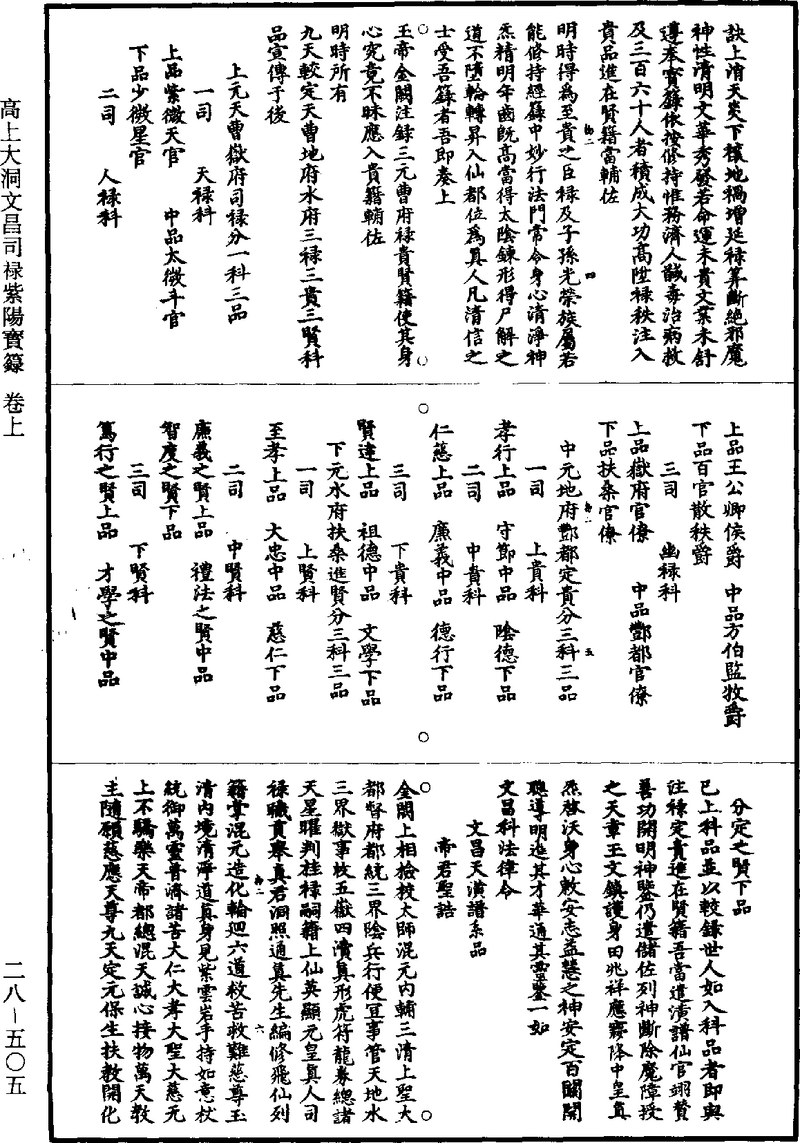 高上大洞文昌司祿紫陽寶籙 卷上
二八—五〇五
訣上消天災下禳地禍增延祿算斷絕邪魔
神性清明文華秀發若命運未貴文葉未舒
遵奉寶籙依按修持惟務濟人鹹毒治病救
及三百六十人者積成大功高陞祿秩注入
貴品進在賢籍當輔佐
明時得為至貴之臣祿及子孫光榮族屬若
能修持經籙中妙行法門常令身心清淨神
炁精明年齒既高當得太陰鍊形得尸解之
道不墮輪轉昇入仙都位為真人凡清信之
士受吾籙者吾即奏上
玉帝金闕注錄三元曹府祿貴賢籍使其身
心究竟不昧應入貴籍輔佐
明時所有
九天較定天曹地府水府三祿三貴三賢科
品宣傳于後
上元天曹嶽府司祿分一科三品
一司 天祿科
上品紫微天官 中品太微斗官
下品少微星官
二司 人祿科
上品王公卿侯爵 中品方伯監牧爵
下品百官散秩爵
三司 幽祿科
上品嶽府官僚 中品酆都官僚
下品扶桑官僚
中元地府酆都定貴分三科三品
一司 上貴科
孝行上品 守節中品 陰德下品
二司 中貴科
仁慈上品 廉義中品 德行下品
三司 下貴科
賢達上品 祖德中品 文學下品
下元水府扶桑進賢分三科三品
一司 上賢科
至孝上品 大忠中品 慈仁下品
二司 中賢科
廉義之賢上品 禮法之賢中品
智度之賢下品
三司 下賢科
篤行之賢上品 才學之賢中品
分定之賢下品
已上科品並以較錄世人如入科品者即與
注祿定貴進在賢籍吾當遣潢譜仙官翊贊
善功開明神鑒仍遣儲佐列神斷除魔障授
之天章玉文鎮護身田兆祥應霧降中皇真
炁啓沃身心敷安志益慧之神安定百關開
聰導明進其才華通其靈鑒一如
文昌科法律令
文昌天潢譜系品
帝君聖誥
金闕上相檢校太師混元內輔三清上聖大
都督府都統三界陰兵行便宜事管天地水
三界獄事收五嶽四瀆真形虎符龍券總諸
天星曜判桂祿嗣籍上仙英顯元皇真人司
祿職貢舉真君洞照通真先生編修飛仙列
籍掌混元造化輪迴六道救苦救難慈尊玉
清內境清淨道真身見紫雲岩手持如意杖
統御萬靈普濟諸苦大仁大孝大聖大慈元
上不驕樂天帝都總混天誠心接物萬天教
主隨願慈應天尊九天定元保生扶教開化